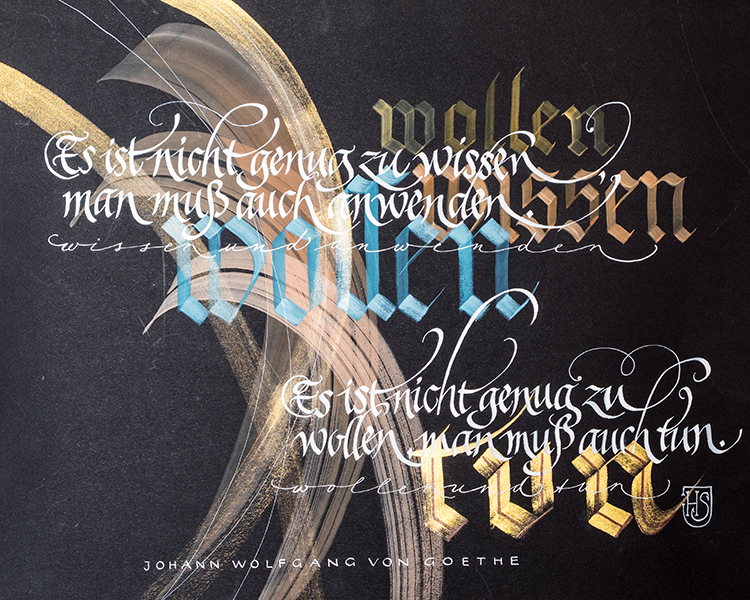 wollen
Es ist nicht genug zu wissen,
wissen
man muß auch anwenden.
wissen und anwenden
wollen
Es ist nicht genug zu
wollen man muß auch tun.
tun
wollen und tun
HS
JOHANN WOLFGANG VON GOETHE